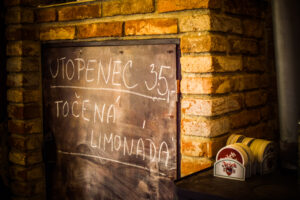 UTOPENEC 35,-
TOČENÁ
LIMONÁDA